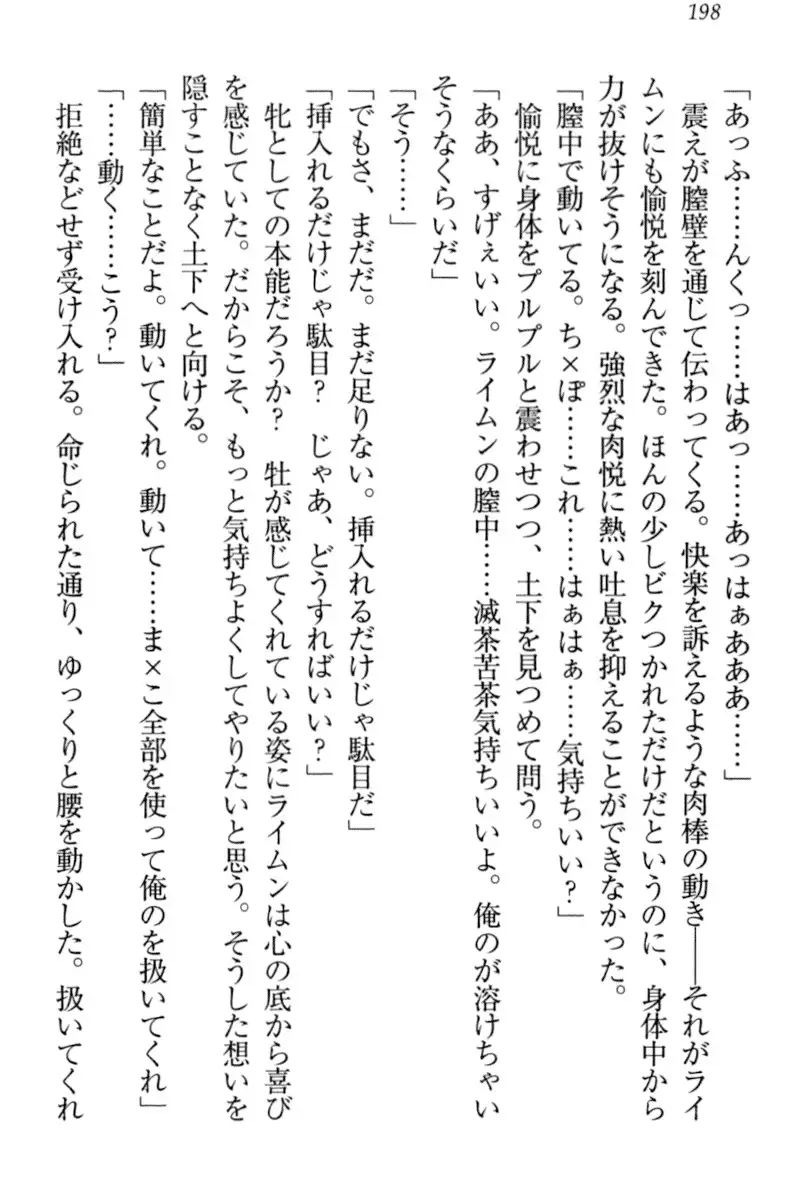 198
「あっふ……んくっ……はあっ……あっはぁあああ……」
　震えが膣壁を通じて伝わってくる。快楽を訴えるような肉棒の動き――それがライ
ムンにも愉悦を刻んできた。ほんの少しビクつかれただけだというのに、身体中から
力が抜けそうになる。強烈な肉悦に熱い吐息を抑えることができなかった。
「膣中で動いてる。ち×ぽ……これ……はぁはぁ……気持ちいい？」
　愉悦に身体をプルプルと震わせつつ、土下を見つめて問う。
「ああ、すげぇいい。ライムンの膣中……滅茶苦茶気持ちいいよ。俺のが溶けちゃい
そうなくらいだ」
「そう……」
「でもさ、まだだ。まだ足りない。挿入れるだけじゃ駄目だ」
「挿入れるだけじゃ駄目？　じゃあ、どうすればいい？」
　牝としての本能だろうか？　牡が感じてくれている姿にライムンは心の底から喜び
を感じていた。だからこそ、もっと気持ちよくしてやりたいと思う。そうした想いを
隠すことなく土下へと向ける。
「簡単なことだよ。動いてくれ。動いて……ま×こ全部を使って俺のを扱いてくれ」
「……動く……こう？」
　拒絶などせず受け入れる。命じられた通り、ゆっくりと腰を動かした。扱いてくれ